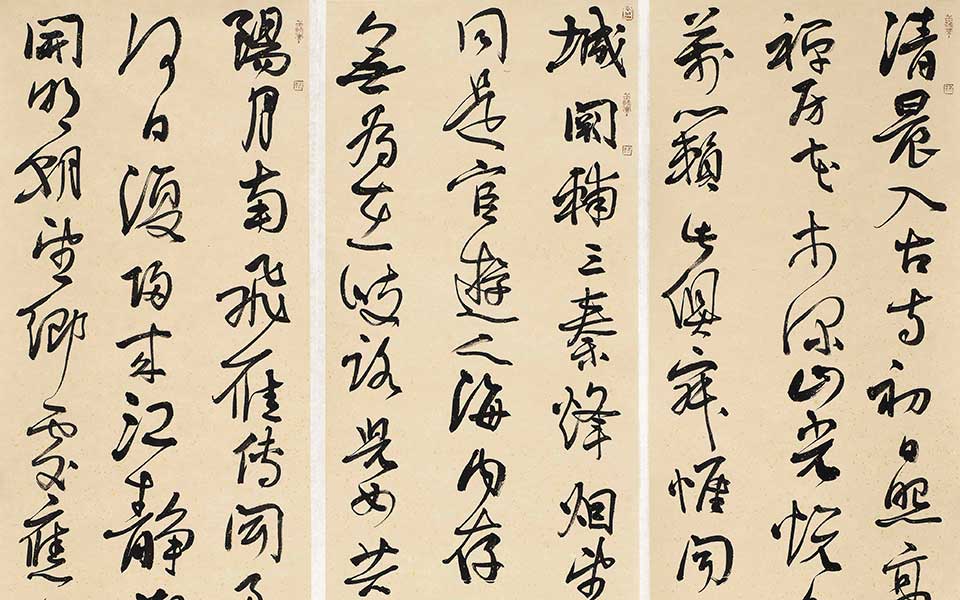 清晨入古寺初日照高
禪房花木深山光悦
萬籟此俱寂惟聞
城闕輔三秦烽烟望
同是宦遊人海内存
無為在歧路兒女共
陽月南飛雁傳聞
何日復歸來江静
開明朝望鄉處應